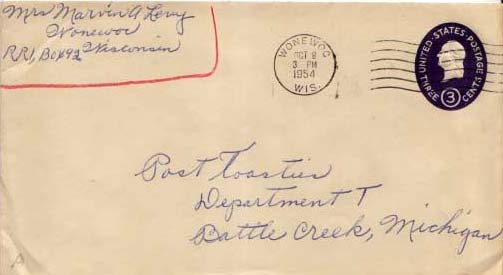 Mrs Marvin A Levy
Wonewoc
RR1, Box 92 Wisconsin
WONEWOC
OCT 8
3 PM
1954
WIS.
UNITED STATES POSTAGE
THREE 3 CENTS
Post Toasties
Department T
Battle Creek, Michigan